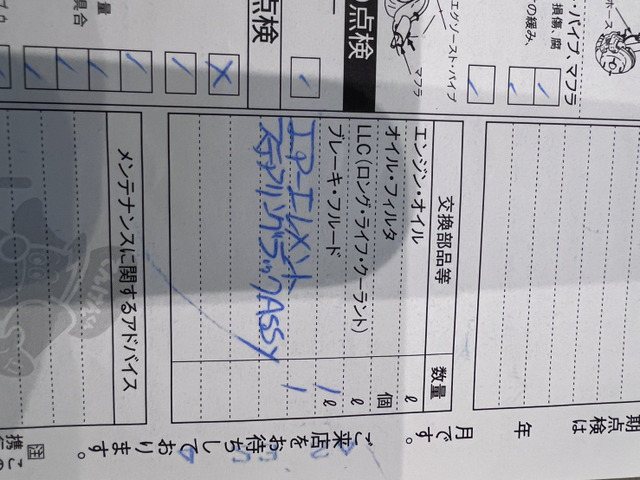 ホース
・パイプ、マフラ
損傷、腐
の緩み、
エグゾースト・パイプ
マフラ
の点検
点検
量
具合
交換部品等 数量
エンジン・オイル ℓ
オイル・フィルタ 個
LLC(ロング・ライフ・クーラント) ℓ
ブレーキ・フルード 1 ℓ
エアーエレメント 1
ステアリングラックASSY
メンテナンスに関するアドバイス
期点検は
年
月です。
ご来店をお待ちしております。
注
携
この